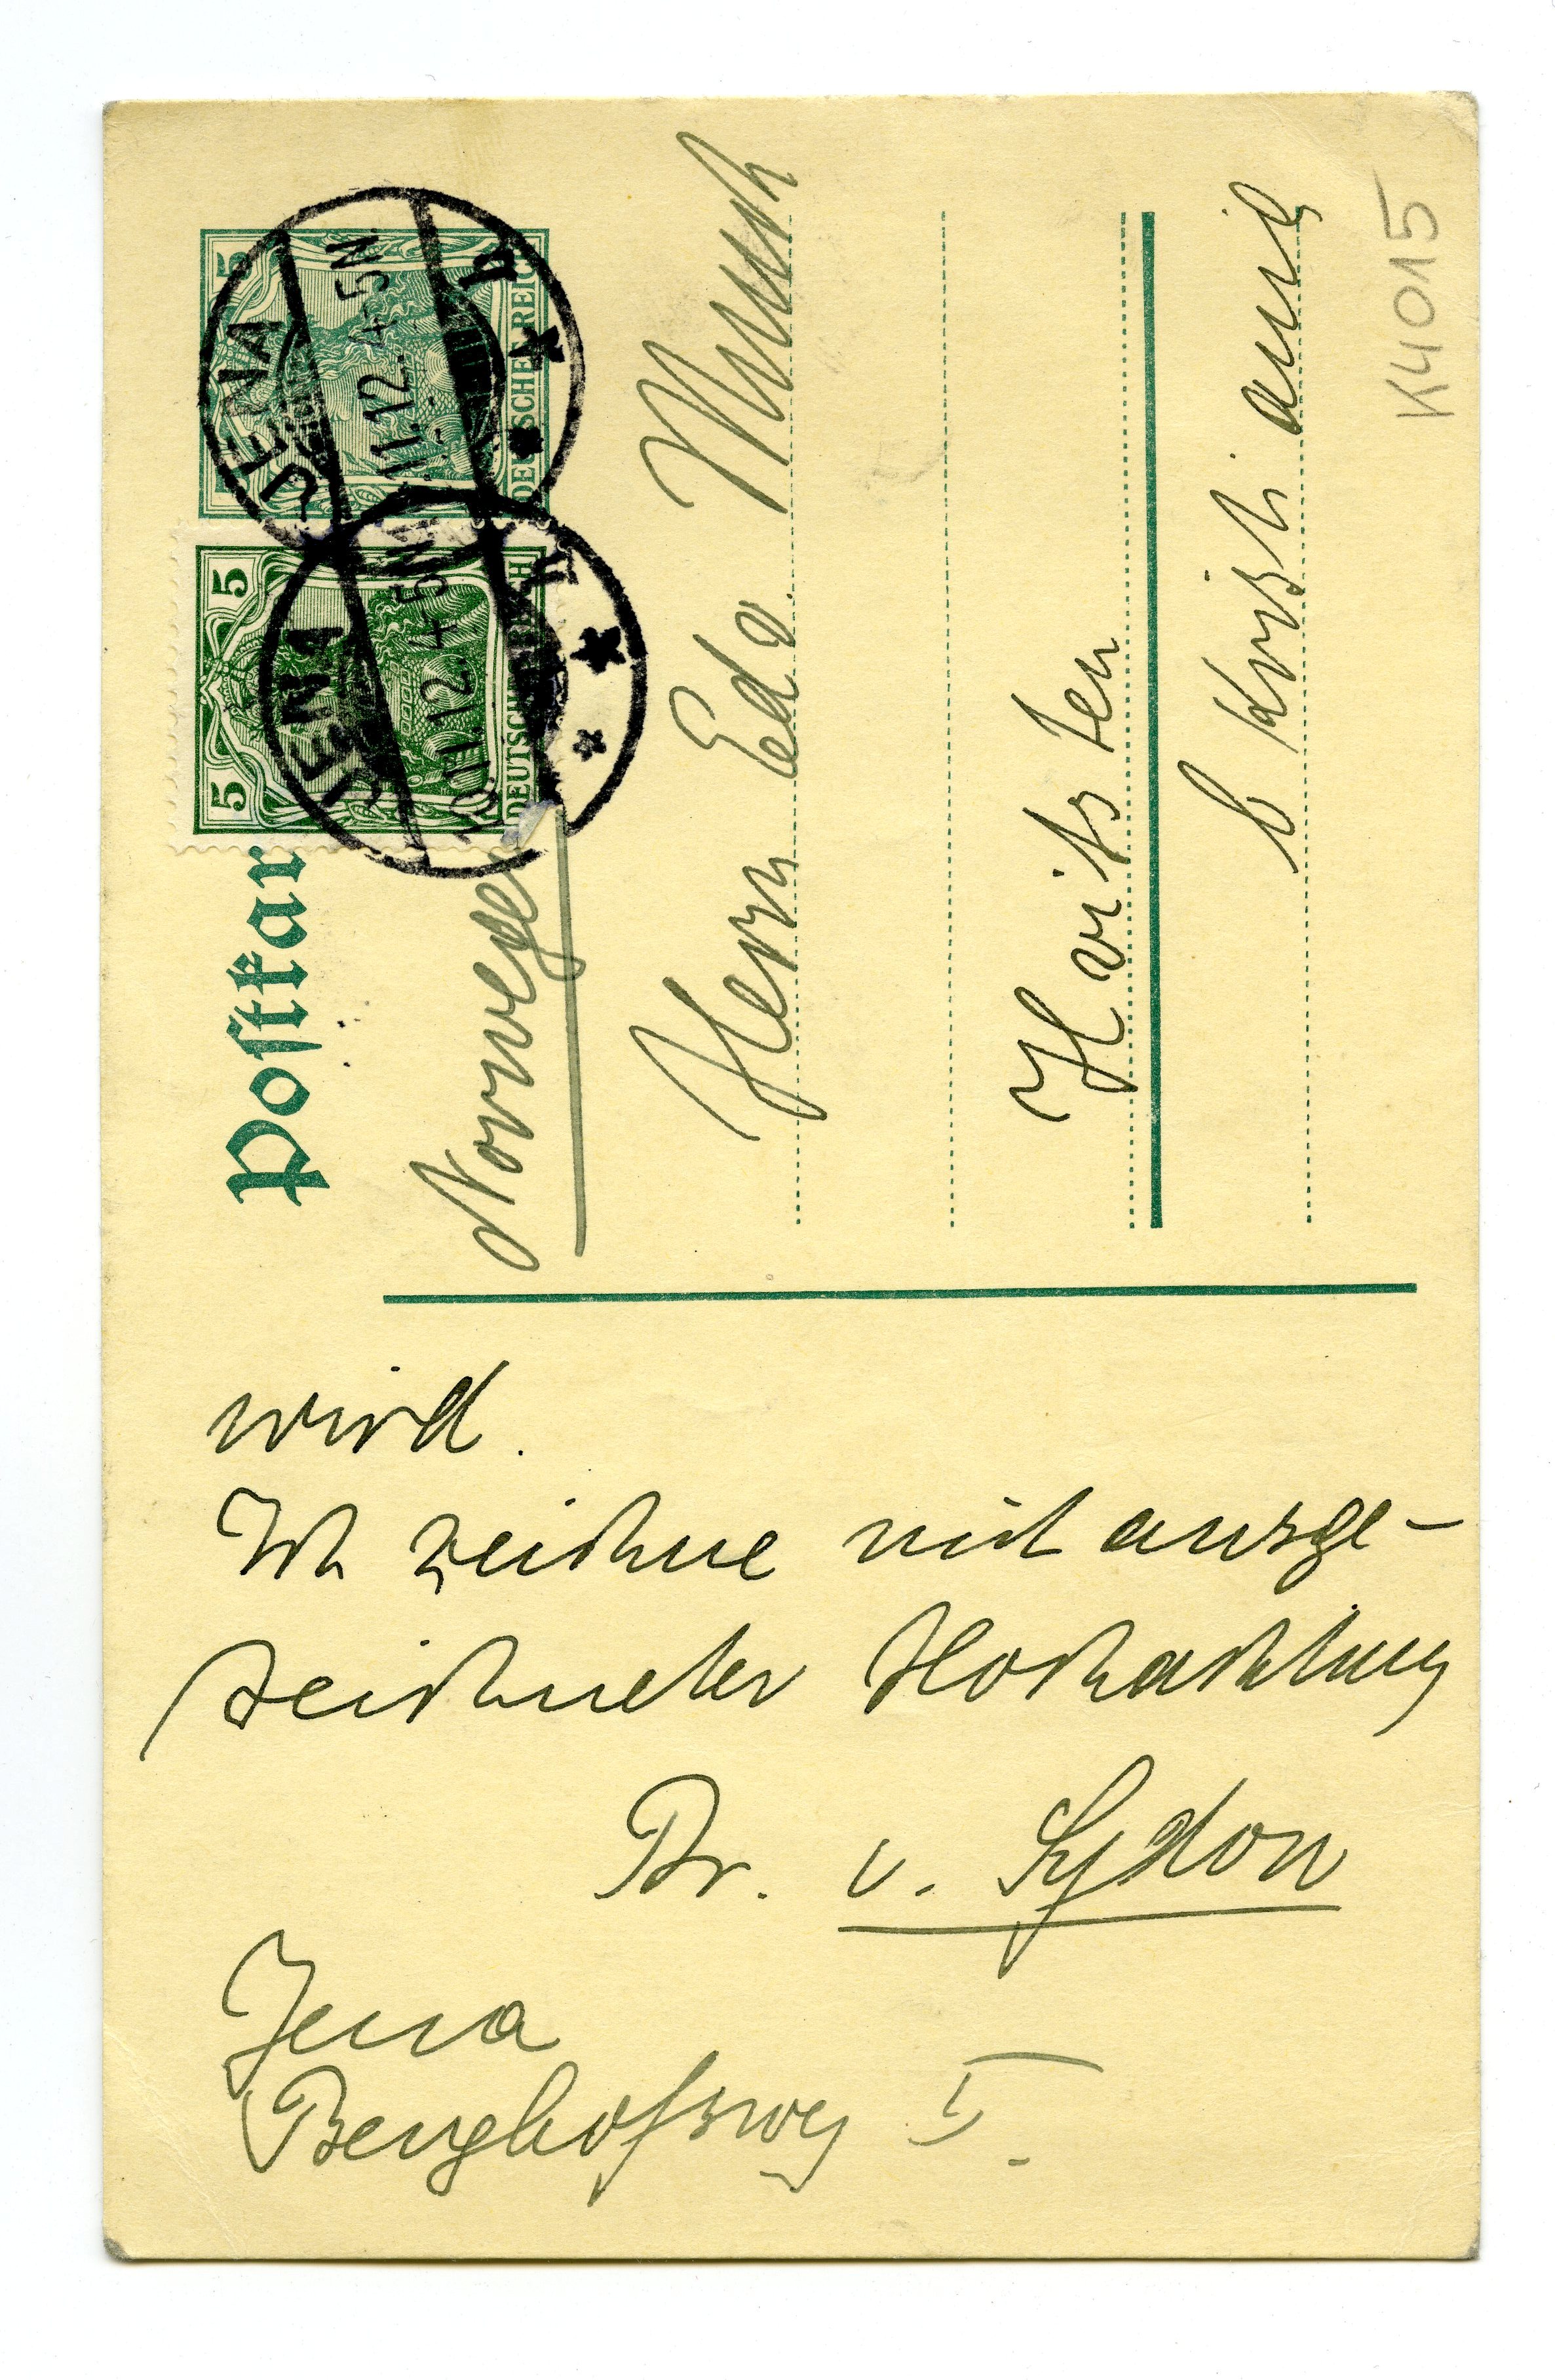 Postkar
5 5
DEUTSCHES REICH
5 5
DEUTSCHES REICH
JENA
11.12.4-5N.
b
JENA
10.11.12.4-5N.
Norwegen
Herrn Edv. Munch
Hvitsten
b Kristiania
K4015
wird.
Ich zeichne mit ausge-
zeichneter Hochachtung
Dr. v. Sydow
Jena
Berghofsweg I.